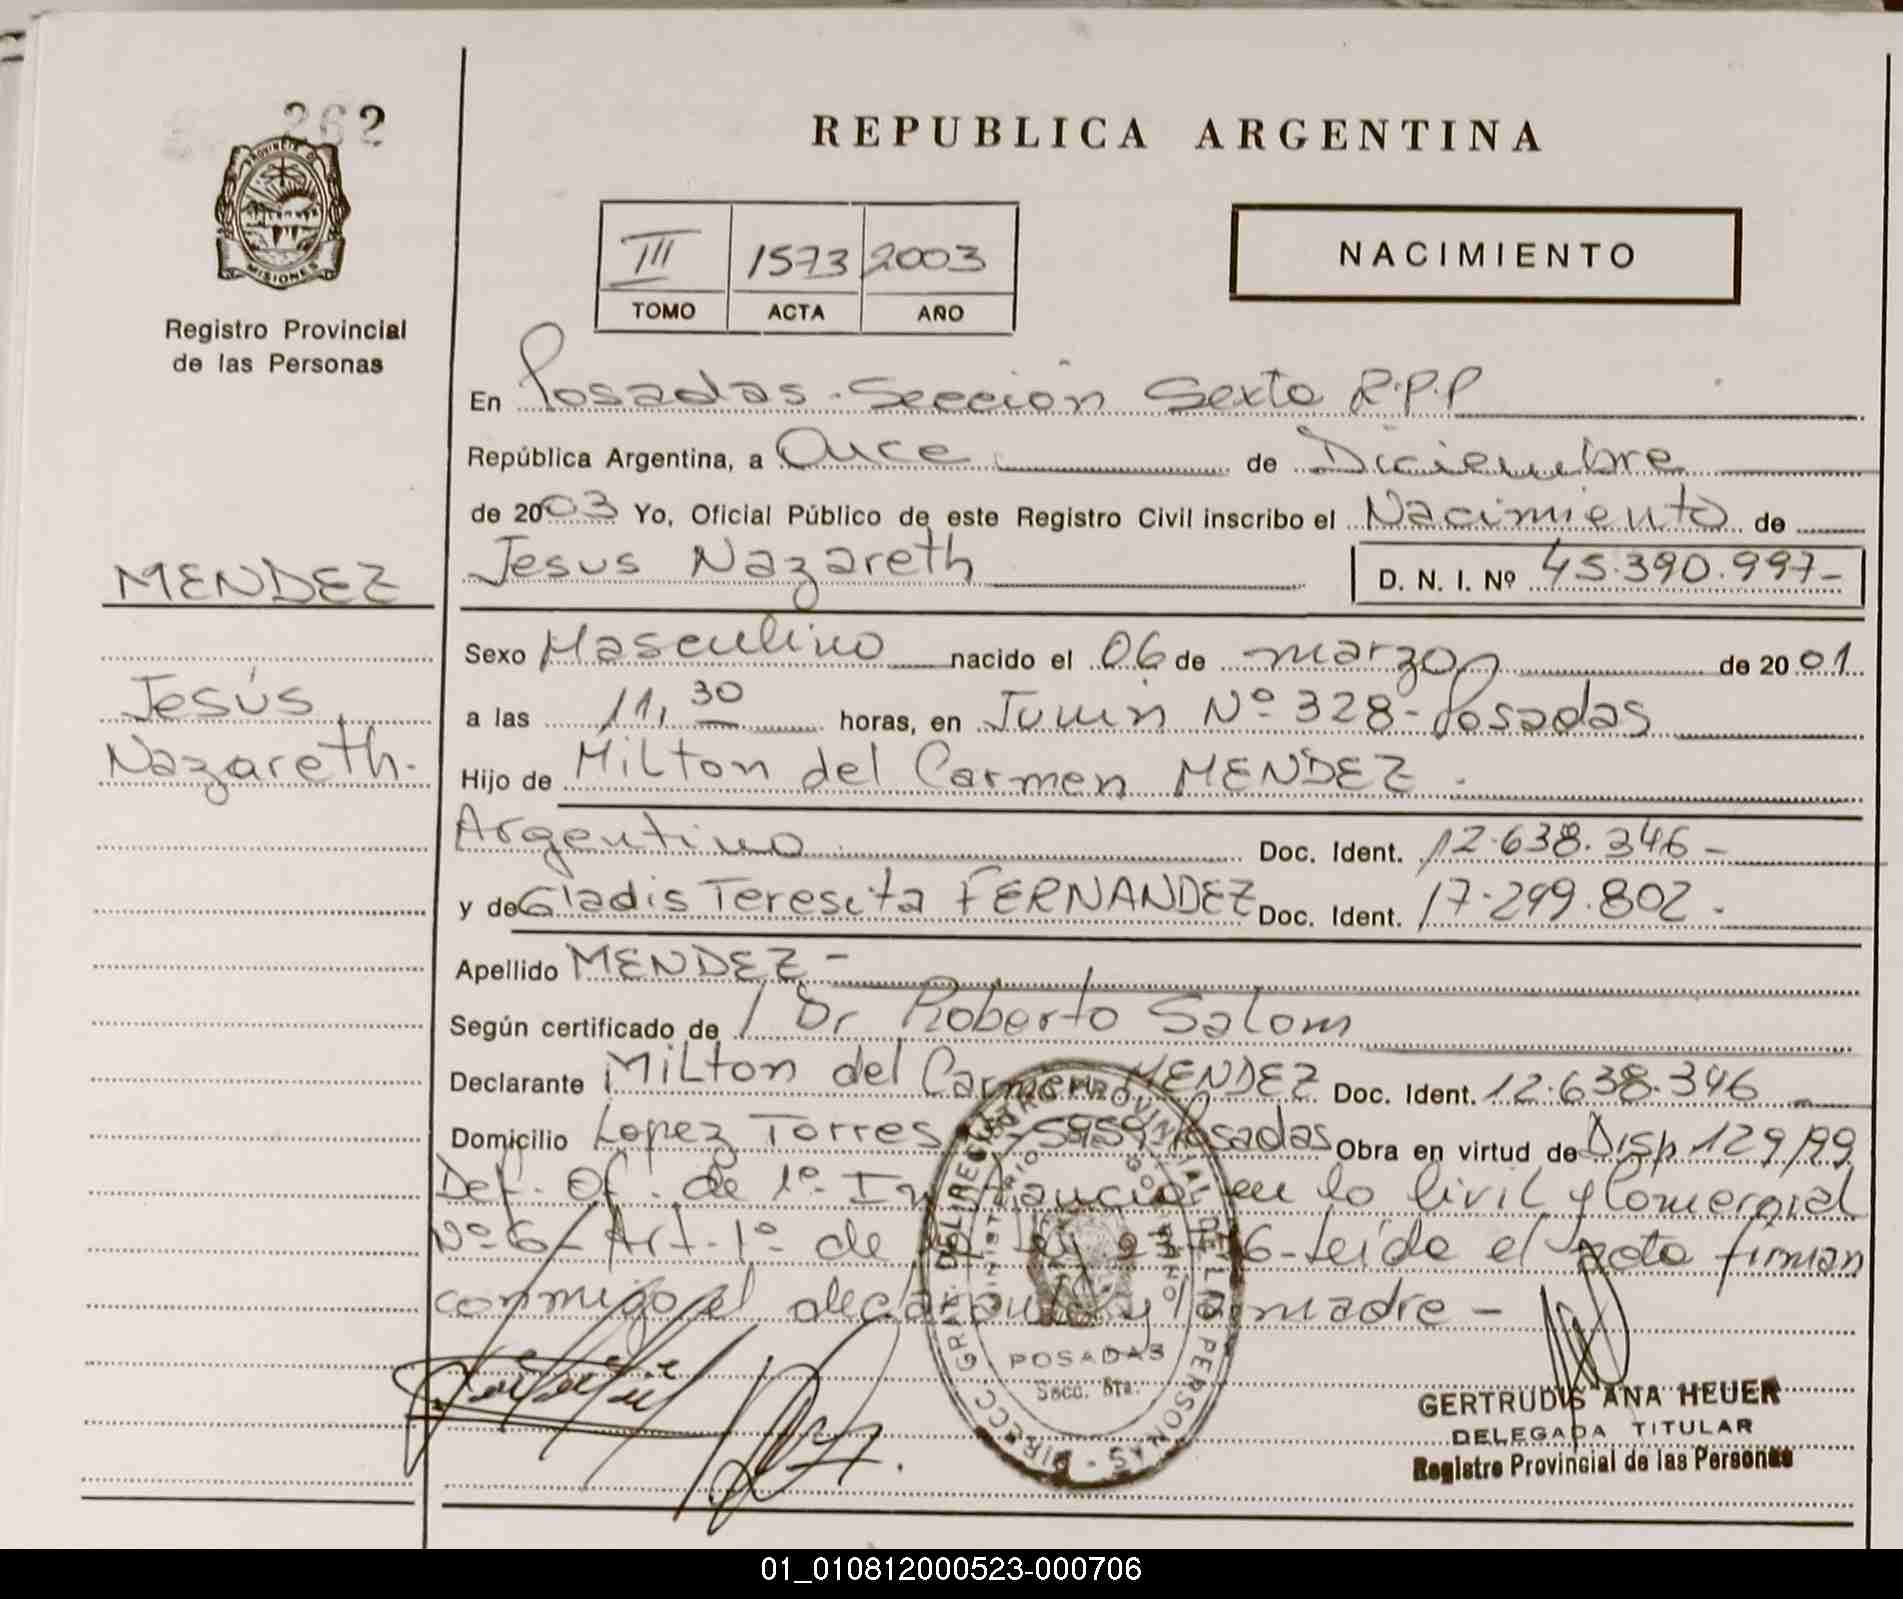 262
PROVINCIA D
MISIONES
Registro Provincial
de las Personas
MENDEZ
Jesús
Nazareth.
REPUBLICA ARGENTINA
III 1573 2003
TOMO ACTA AÑO
NACIMIENTO
En Posadas - Sección Sexta R.P.P
República Argentina, a Once de Diciembre
de 2003 Yo, Oficial Público de este Registro Civil inscribo el Nacimiento de
Jesus Nazareth D. N. I. Nº 45.390.997-
Sexo Masculino nacido el 06 de marzo de 2001
a las 11,30 horas, en Junin Nº 328 - Posadas
Hijo de Milton del Carmen MENDEZ.
Argentino Doc. Ident. 12.638.346-
y de Gladis Teresita FERNANDEZ Doc. Ident. 17.299.802-
Apellido MENDEZ-
Según certificado de Dr Roberto Salom
Declarante Milton del Carmen MENDEZ Doc. Ident. 12.638.346
Domicilio Lopez Torres 5959 Posadas Obra en virtud de Disp 129/99
Def. Of. de 1º Instancia en lo Civil y Comercial
Nº 6 - Art. 1º de la Ley - Leída el acta firman
conmigo el declarante y la madre -
POSADAS
Secc. 6ta.
GERTRUDIS ANA HEUER
DELEGADA TITULAR
Registro Provincial de las Personas
01_010812000523-000706